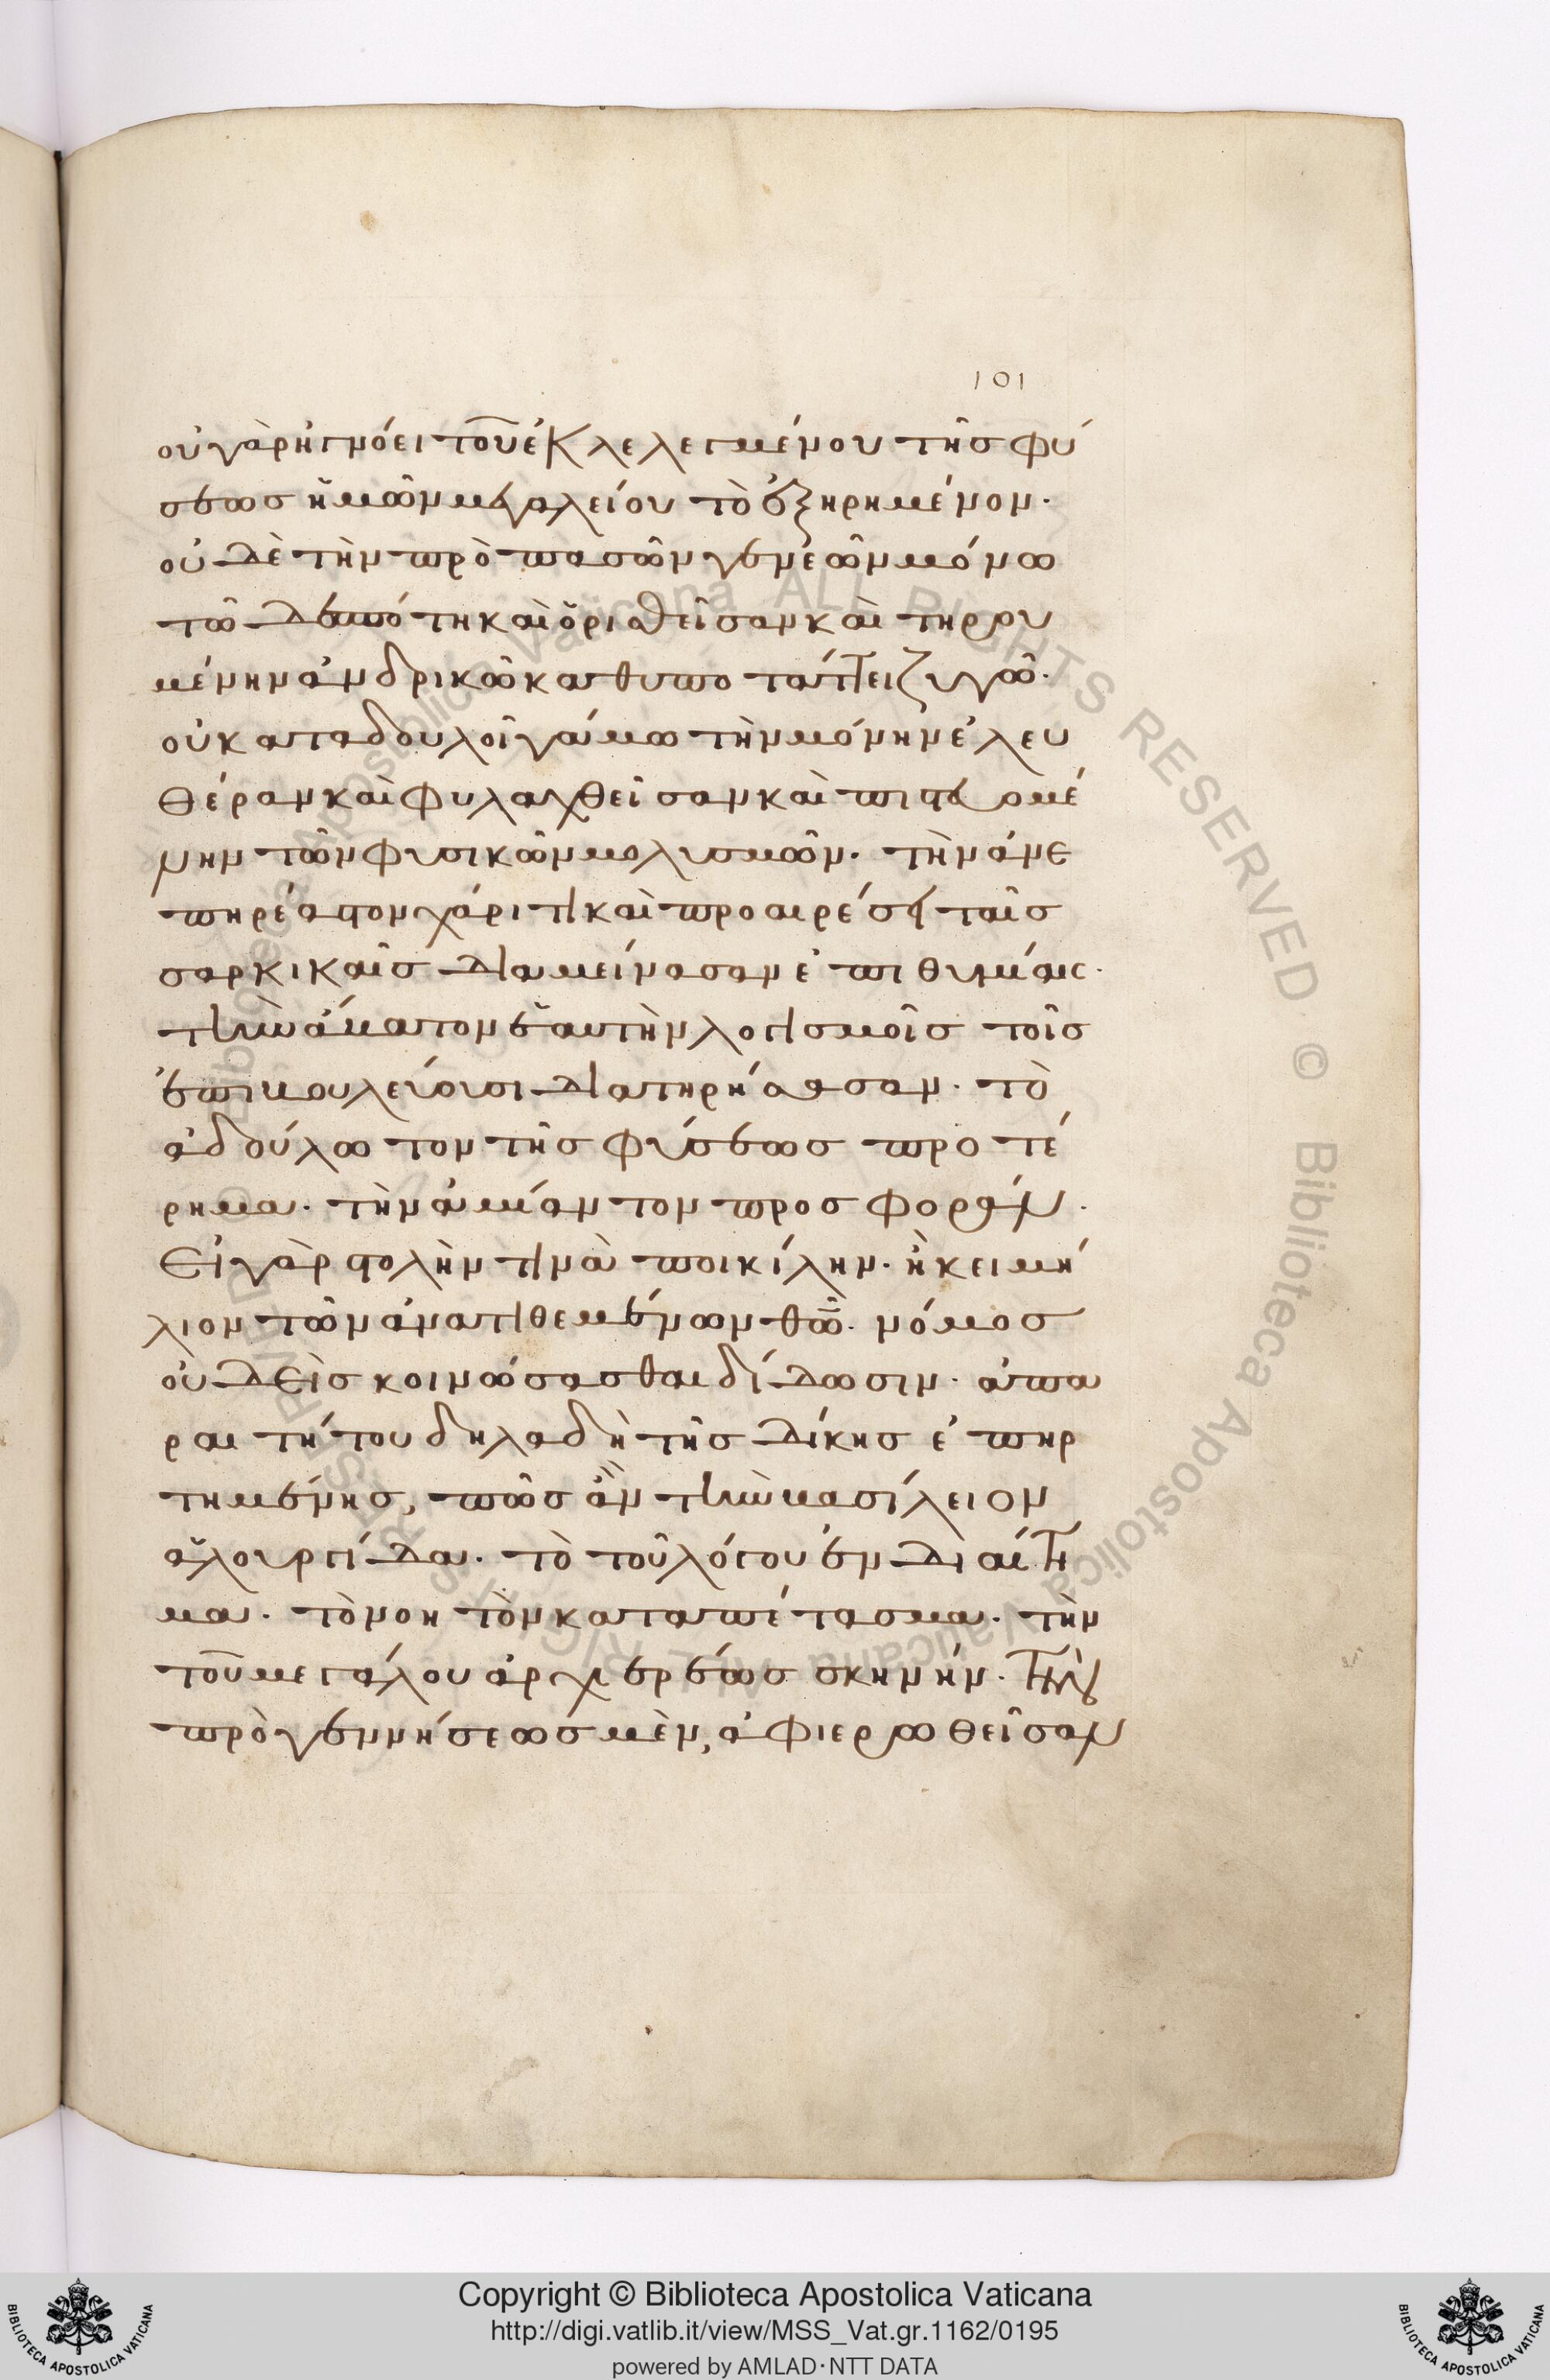 101
οὐ γὰρ ἠγνόει τοῦ ἐκλελεγμένου τῆς φύ
σεως ἡμῶν μεγαλείου τὸ ἐξῃρημένον·
οὐδὲ τὴν πρὸ πασῶν γενεῶν μόνω
τῶ δεσπότη καὶ ὁρισθεῖσαν καὶ τηρου
μένην ἀνδρικῶ καθυποτάττει ζυγῶ·
οὐ καταδουλοῖ γάμω τὴν μόνην ἐλευ
θέραν καὶ φυλαχθεῖσαν καὶ πιστευομέ
νην τῶν φυσικῶν μολυσμῶν· τὴν ἀνε
πηρέαστον χάριτι καὶ προαιρέσει ταῖς
σαρκικαῖς διαμείνασαν ἐπιθυμίαις·
τὴν ἄβατον ἑαυτὴν λογισμοῖς τοῖς
ἐπιβουλεύουσι διατηρήσασαν· τὸ
ἀδούλωτον τῆς φύσεως προτέ
ρημα· τὴν ἀμίαντον προσφοράν·
Εἰ γὰρ στολὴν τινὰ ποικίλην· ἢ κειμή
λιον τῶν ἀνατιθεμένων θῶ· νόμος
οὐδεὶς κοινώσασθαι δίδωσιν· ἀπα
ραιτήτου δηλαδὴ τῆς δίκης ἐπηρ
τημένης, πῶς ἂν τὴν βασίλειον
ἁλουργίδα· τὸ τοῦ λόγου ἐνδιαίτη
μα· τὸ νοητὸν καταπέτασμα· τὴν
τοῦ μεγάλου ἀρχιερέως σκηνήν· τὴν
πρὸ γεννήσεως μὲν, ἀφιερωθεῖσαν
Copyright © Biblioteca Apostolica Vaticana
http://digi.vatlib.it/view/MSS_Vat.gr.1162/0195
powered by AMLAD·NTT DATA
BIBLIOTECA APOSTOLICA VATICANA
BIBLIOTECA APOSTOLICA VATICANA